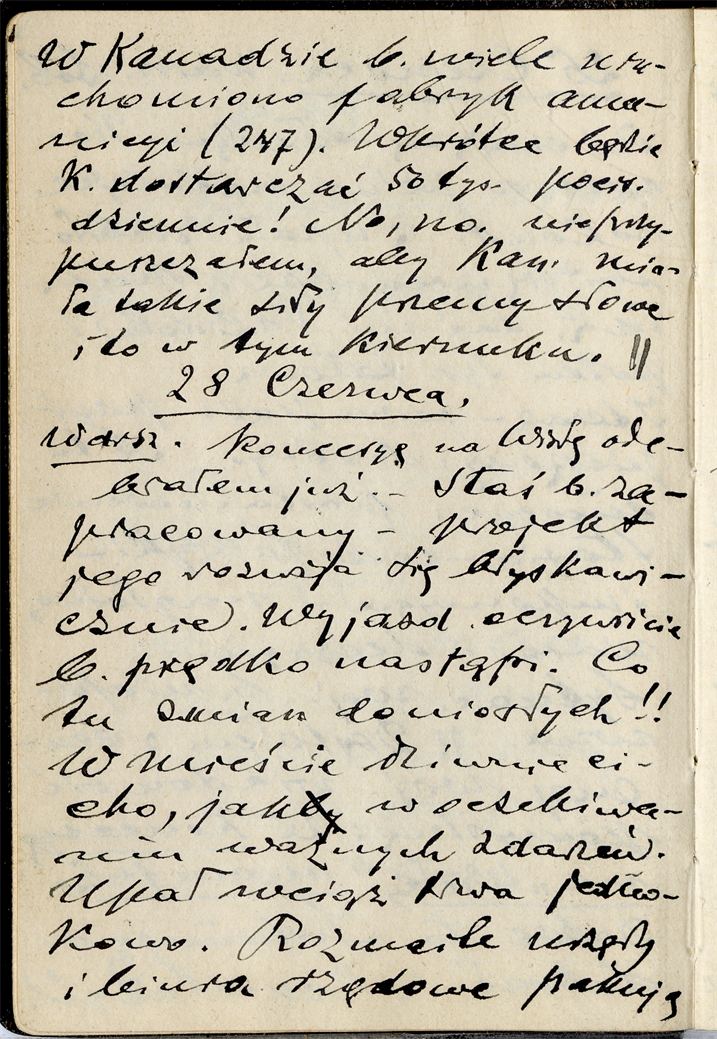 W Kanadzie b. wiele uru-
chomiono fabryk amu-
nicyi (247). Wkrótce będzie
K. dostarczać 50 tys. pocis.
dziennie! No, no. nie przy-
puszczałem, aby Kan. mia-
ła takie siły przemysłowe
i to w tym kierunku. ||
28 Czerwca.
Warsz. Koncesyę na Wisłę ode-
brałem już. – Staś b. za-
pracowany – projekt
jego rozwija się błyskawi-
cznie. Wyjazd oczywiście
b. prędko nastąpi. Co
tu zmian doniosłych!!
W mieście dziwnie ci-
cho, jakby w oczekiwa-
niu ważnych zdarzeń.
Upał wciąż trwa jedna-
kowo. Rozmaite urzędy
i biura rządowe pakują